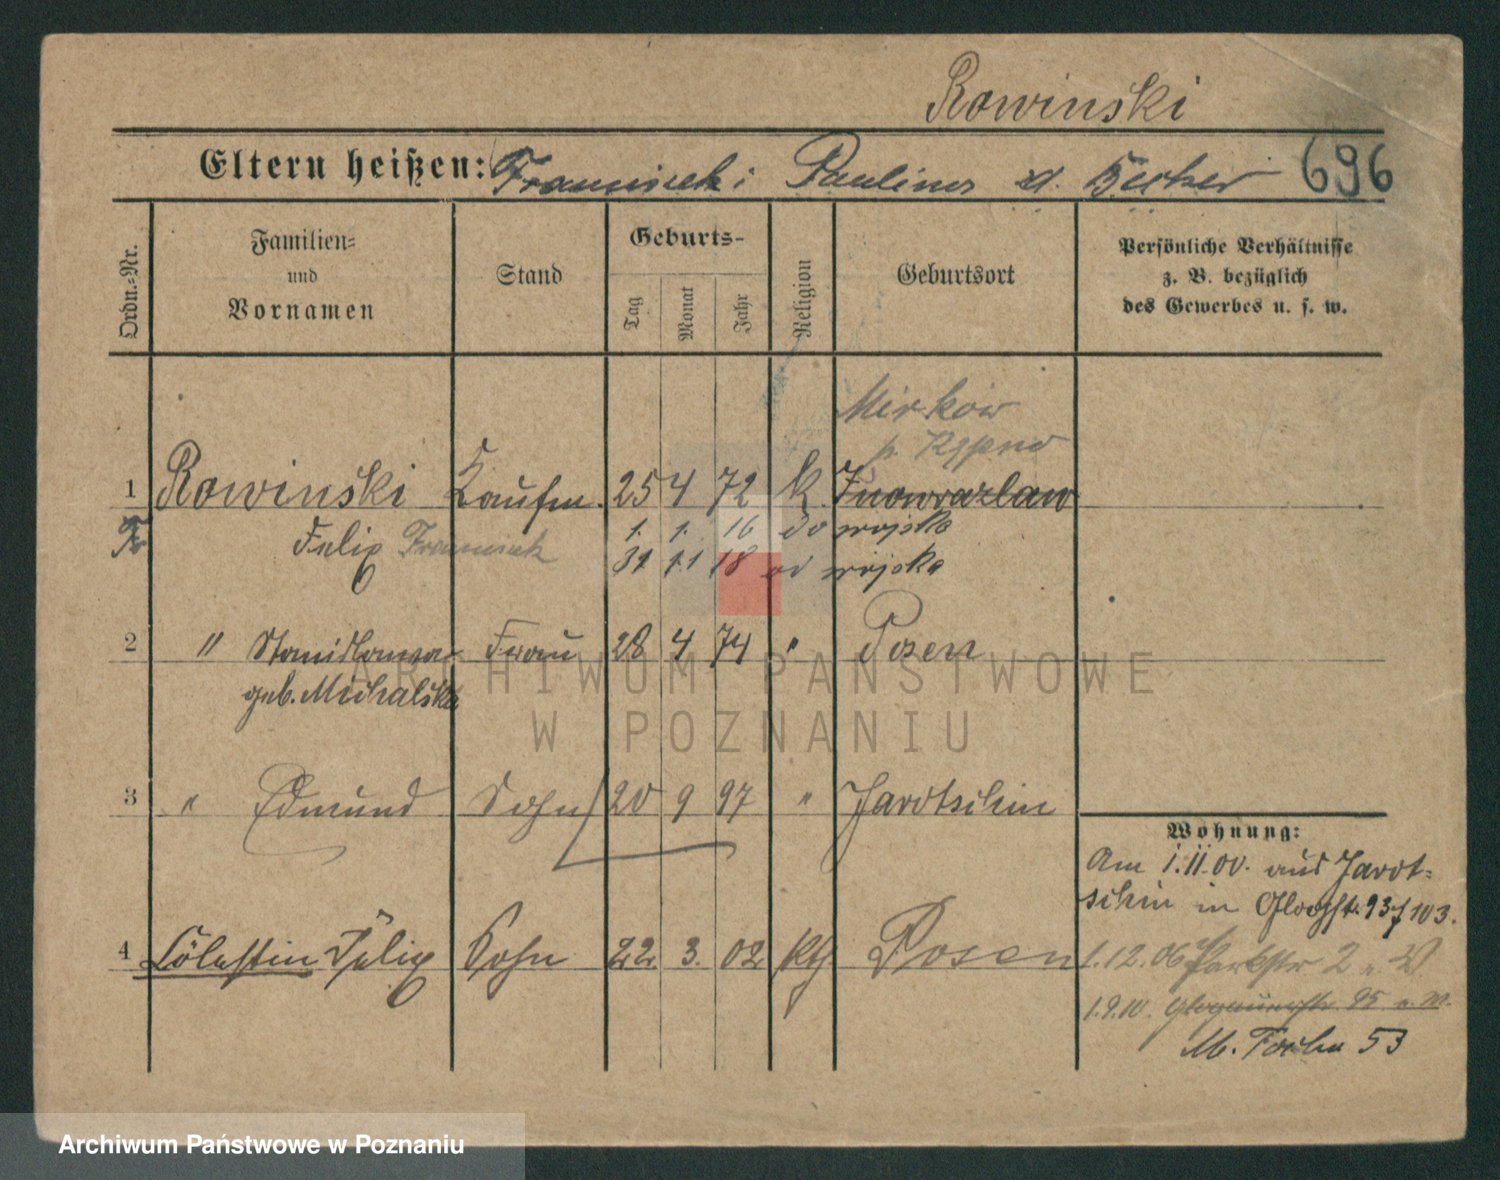 Rowinski
Eltern heißen: Franciszek i Paulina d. Becker 696
Ordn.-Nr.
Familien-
und
Vornamen
Stand
Geburts-
Tag
Monat
Jahr
Religion
Geburtsort
Persönliche Verhältnisse
z. B. bezüglich
des Gewerbes u. s. w.
Mirków
p. Kępno
1 Rowinski Kaufm. 25 4 72 k. Inowrazlaw
Felix Franciszek 1. 1. 16 do wojska
31 11 18 od wojska
2 " Stanislawa Frau 28 4 74 " Posen
geb. Michalska
3 " Edmund Sohn 20 9 97 " Jarotschin
Wohnung:
Am 1.11.00. aus Jarot-
schin in 93/103.
4 Cölestin Felix Sohn 22. 3. 02 kth Posen
1.12.06 Parkstr 2
1.9.10. 95
53
ARCHIWUM PAŃSTWOWE
W POZNANIU
Archiwum Państwowe w Poznaniu